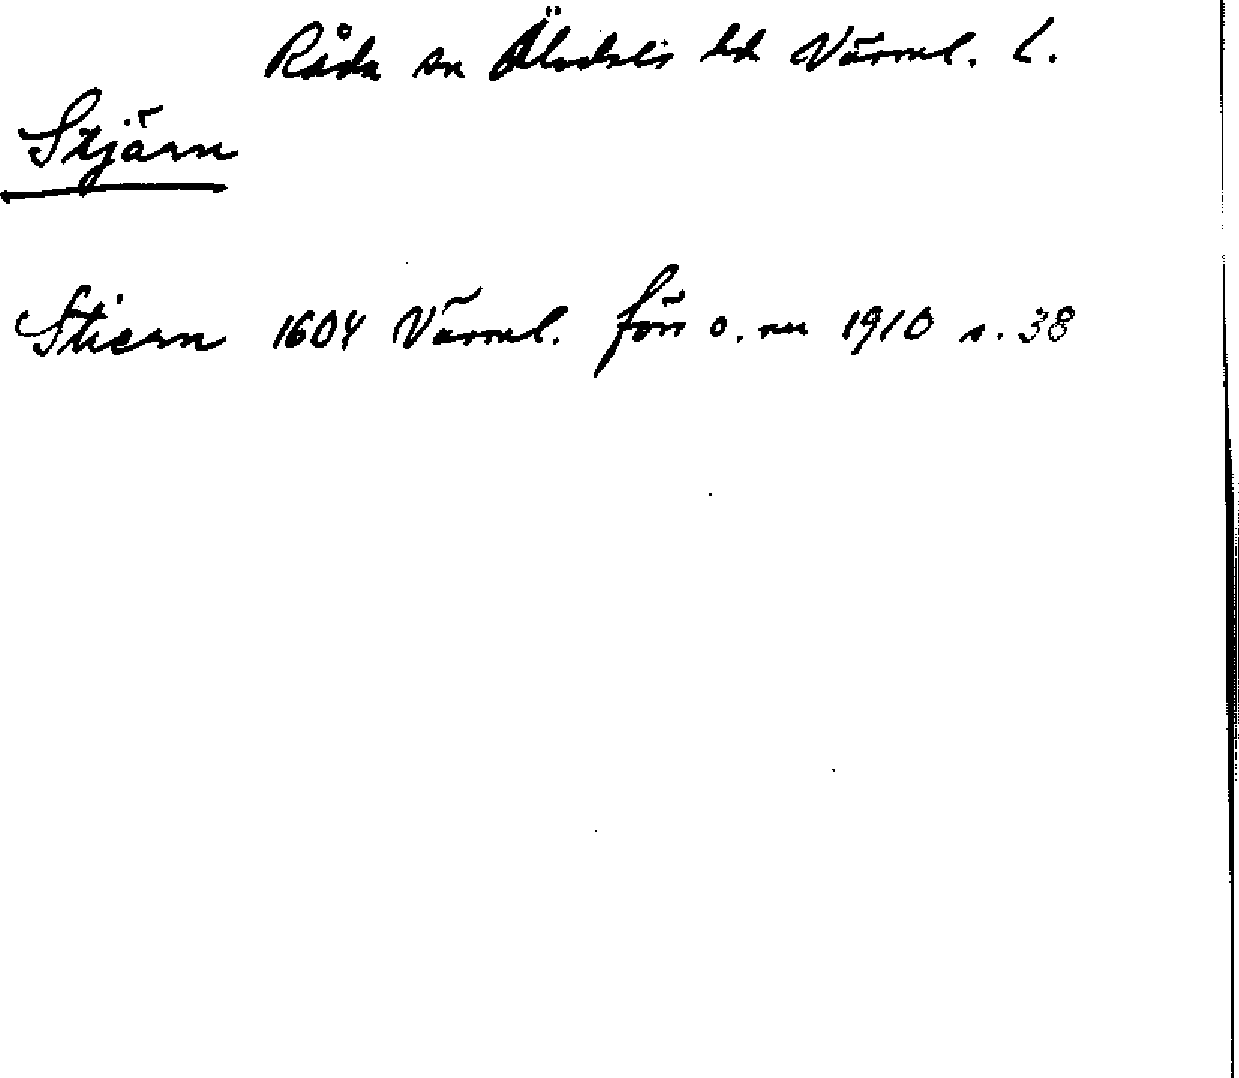 Råda sn Älvdals hd Värml. L.
Stjärn
Stiern 1604 Värml. förr o. nu 1910 s. 38